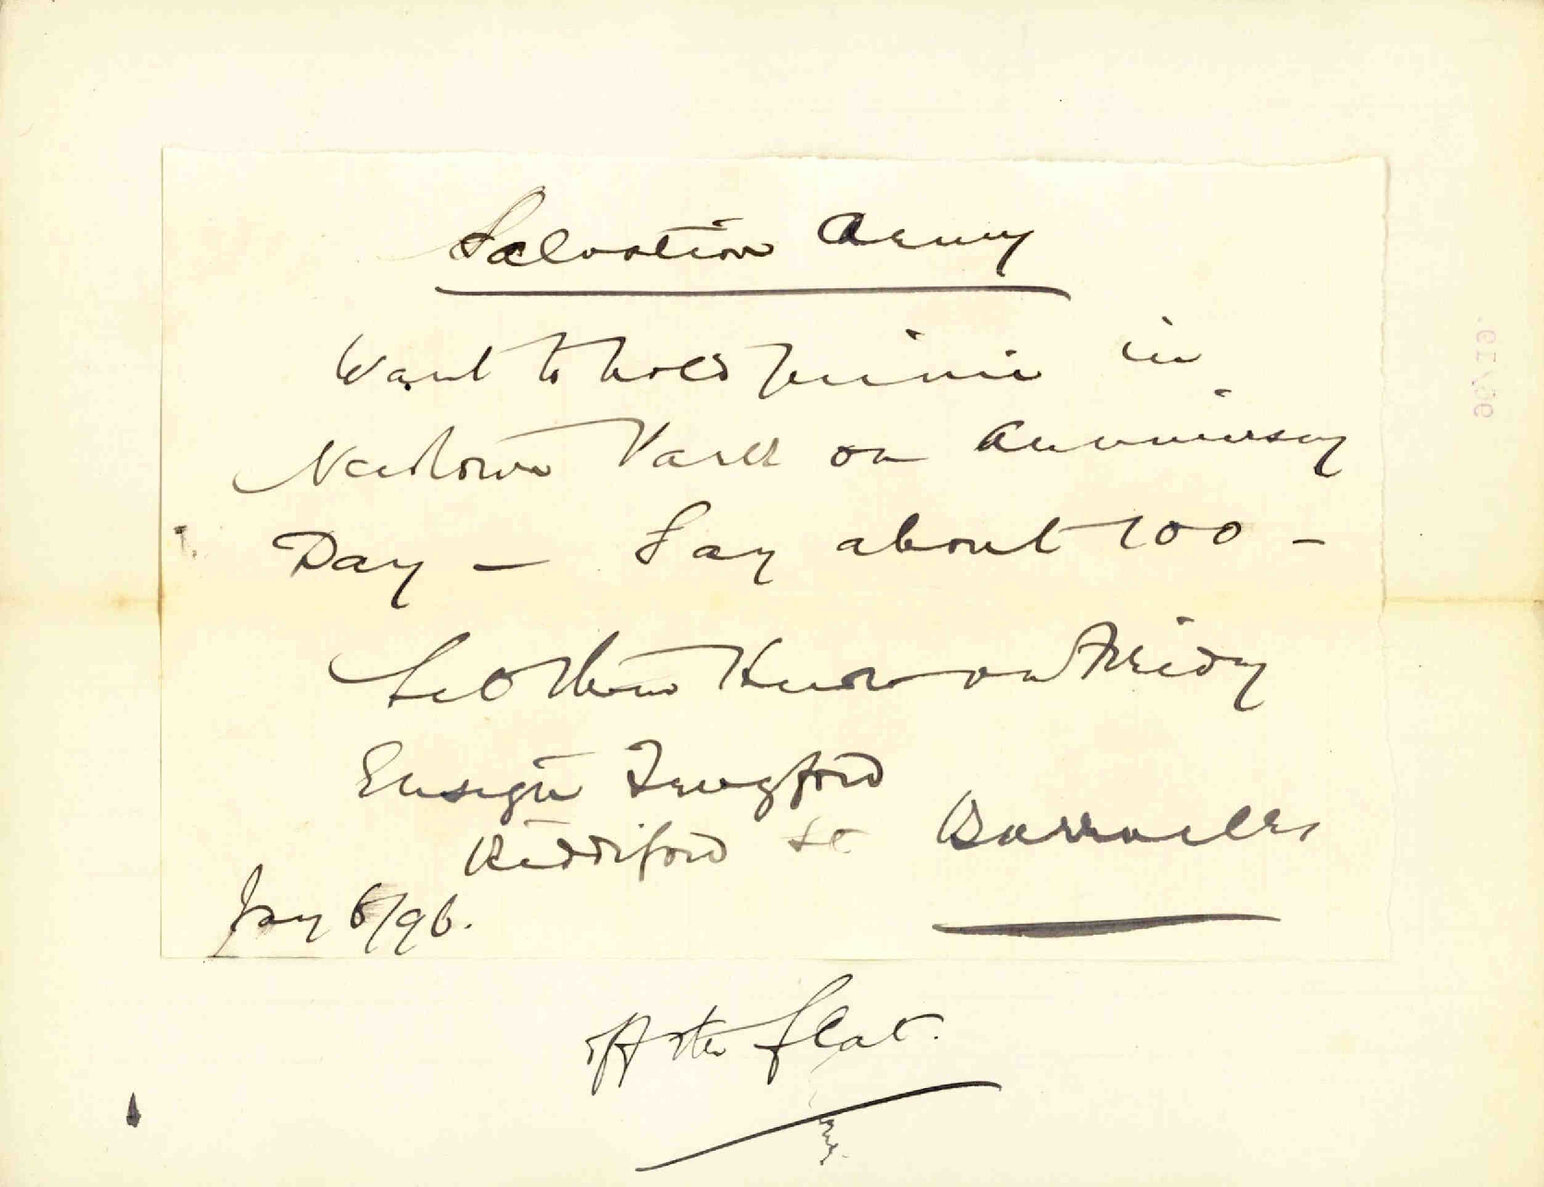 Salvation Army
Want to hold picnic in
Newtown Park on Anniversary
Day — Say about 100 —
Let them know on Friday
Ensign
Riddiford St Barracks
Jany 6/96.
off the flat.